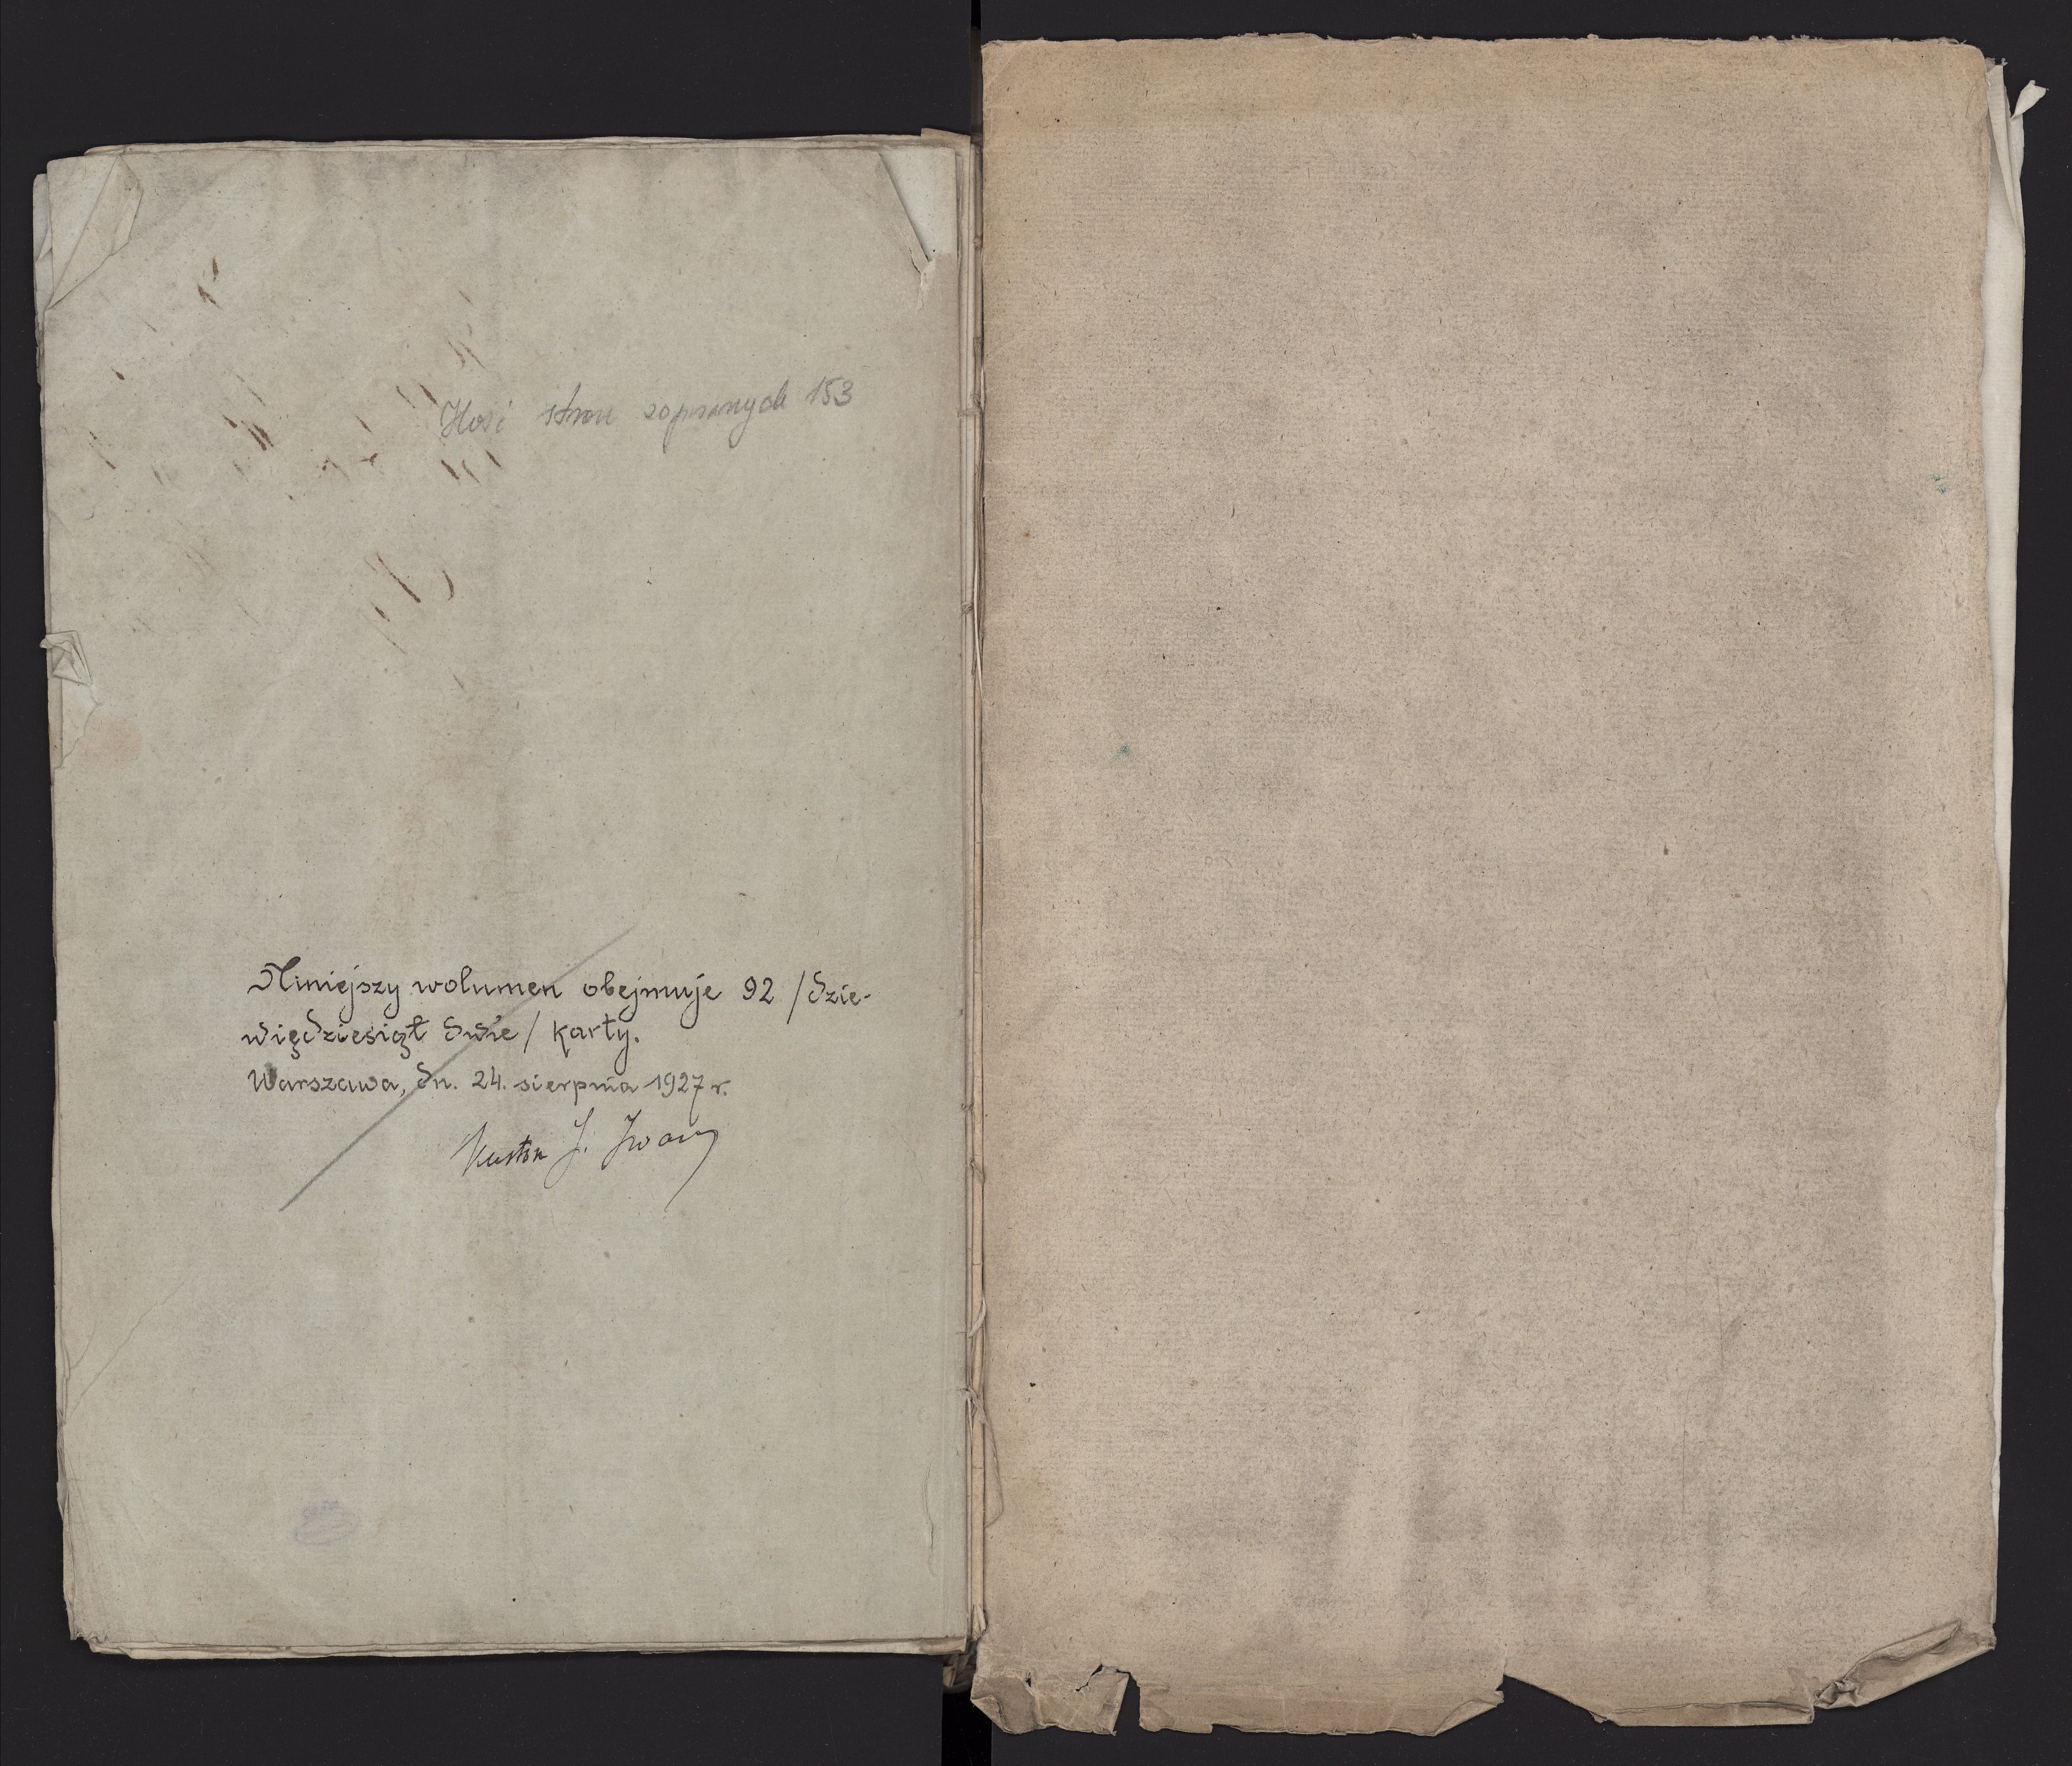 Ilość stron zapisanych 153
Niniejszy wolumen obejmuje 92 /dzie-
więdziesiąt dwie/ karty.
Warszawa, dn. 24. sierpnia 1927 r.
Kustosz J.